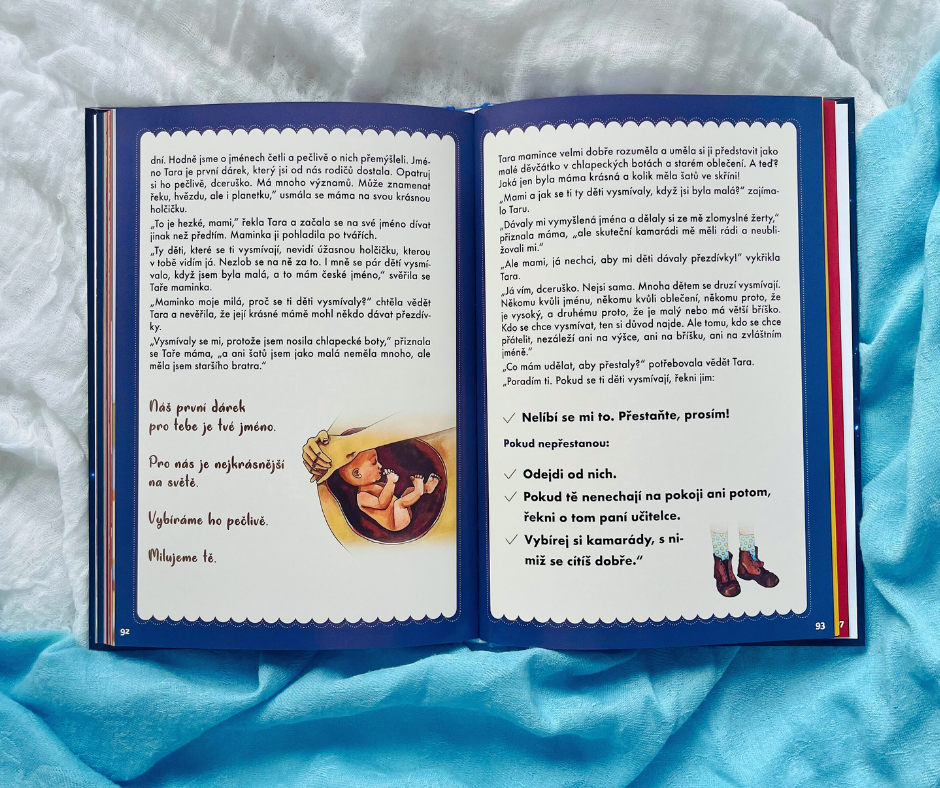 dní. Hodně jsme o jménech četli a pečlivě o nich přemýšleli. Jmé-
no Tara je první dárek, který jsi od nás rodičů dostala. Opatruj
si ho pečlivě, dceruško. Má mnoho významů. Může znamenat
řeku, hvězdu, ale i planetku,“ usmála se máma na svou krásnou
holčičku.
„To je hezké, mami,“ řekla Tara a začala se na své jméno dívat
jinak než předtím. Maminka ji pohladila po tvářích.
„Ty děti, které se ti vysmívají, nevidí úžasnou holčičku, kterou
v tobě vidím já. Nezlob se na ně za to. I mně se pár dětí vysmí-
valo, když jsem byla malá, a to mám české jméno,“ svěřila se
Taře maminka.
„Maminko moje milá, proč se ti děti vysmívaly?“ chtěla vědět
Tara a nevěřila, že její krásné mámě mohl někdo dávat přezdív-
ky.
„Vysmívaly se mi, protože jsem nosila chlapecké boty,“ přiznala
se Taře máma, „a ani šatů jsem jako malá neměla mnoho, ale
měla jsem staršího bratra.“
Náš první dárek
pro tebe je tvé jméno.
Pro nás je nejkrásnější
na světě.
Vybíráme ho pečlivě.
Milujeme tě.
92
Tara mamince velmi dobře rozuměla a uměla si ji představit jako
malé děvčátko v chlapeckých botách a starém oblečení. A teď?
Jaká jen byla máma krásná a kolik měla šatů ve skříni!
„Mami a jak se ti ty děti vysmívaly, když jsi byla malá?“ zajíma-
lo Taru.
„Dávaly mi vymyšlená jména a dělaly si ze mě zlomyslné žerty,“
přiznala máma, „ale skuteční kamarádi mě měli rádi a neubli-
žovali mi.“
„Ale mami, já nechci, aby mi děti dávaly přezdívky!“ vykřikla
Tara.
„Já vím, dceruško. Nejsi sama. Mnoha dětem se druzí vysmívají.
Někomu kvůli jménu, někomu kvůli oblečení, někomu proto, že
je vysoký, a druhému proto, že je malý nebo má větší bříško.
Kdo se chce vysmívat, ten si důvod najde. Ale tomu, kdo se chce
přátelit, nezáleží ani na výšce, ani na bříšku, ani na zvláštním
jméně.“
„Co mám udělat, aby přestaly?“ potřebovala vědět Tara.
„Poradím ti. Pokud se ti děti vysmívají, řekni jim:
✓ Nelíbí se mi to. Přestaňte, prosím!
Pokud nepřestanou:
✓ Odejdi od nich.
✓ Pokud tě nenechají na pokoji ani potom,
řekni o tom paní učitelce.
✓ Vybírej si kamarády, s ni-
miž se cítíš dobře.“
93
7